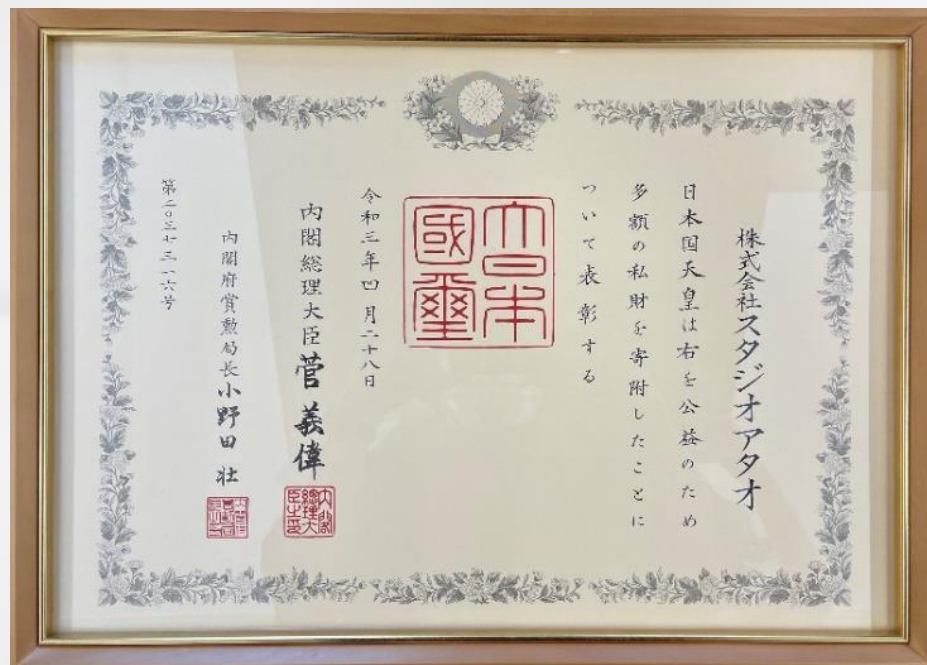 株式会社スタジオアタオ
日本国天皇は右を公益のため
多額の私財を寄附したことに
ついて表彰する
大日本
國璽
令和三年四月二十八日
内閣総理大臣 菅義偉
内閣総理大臣之印
内閣府賞勲局長 小野田壮